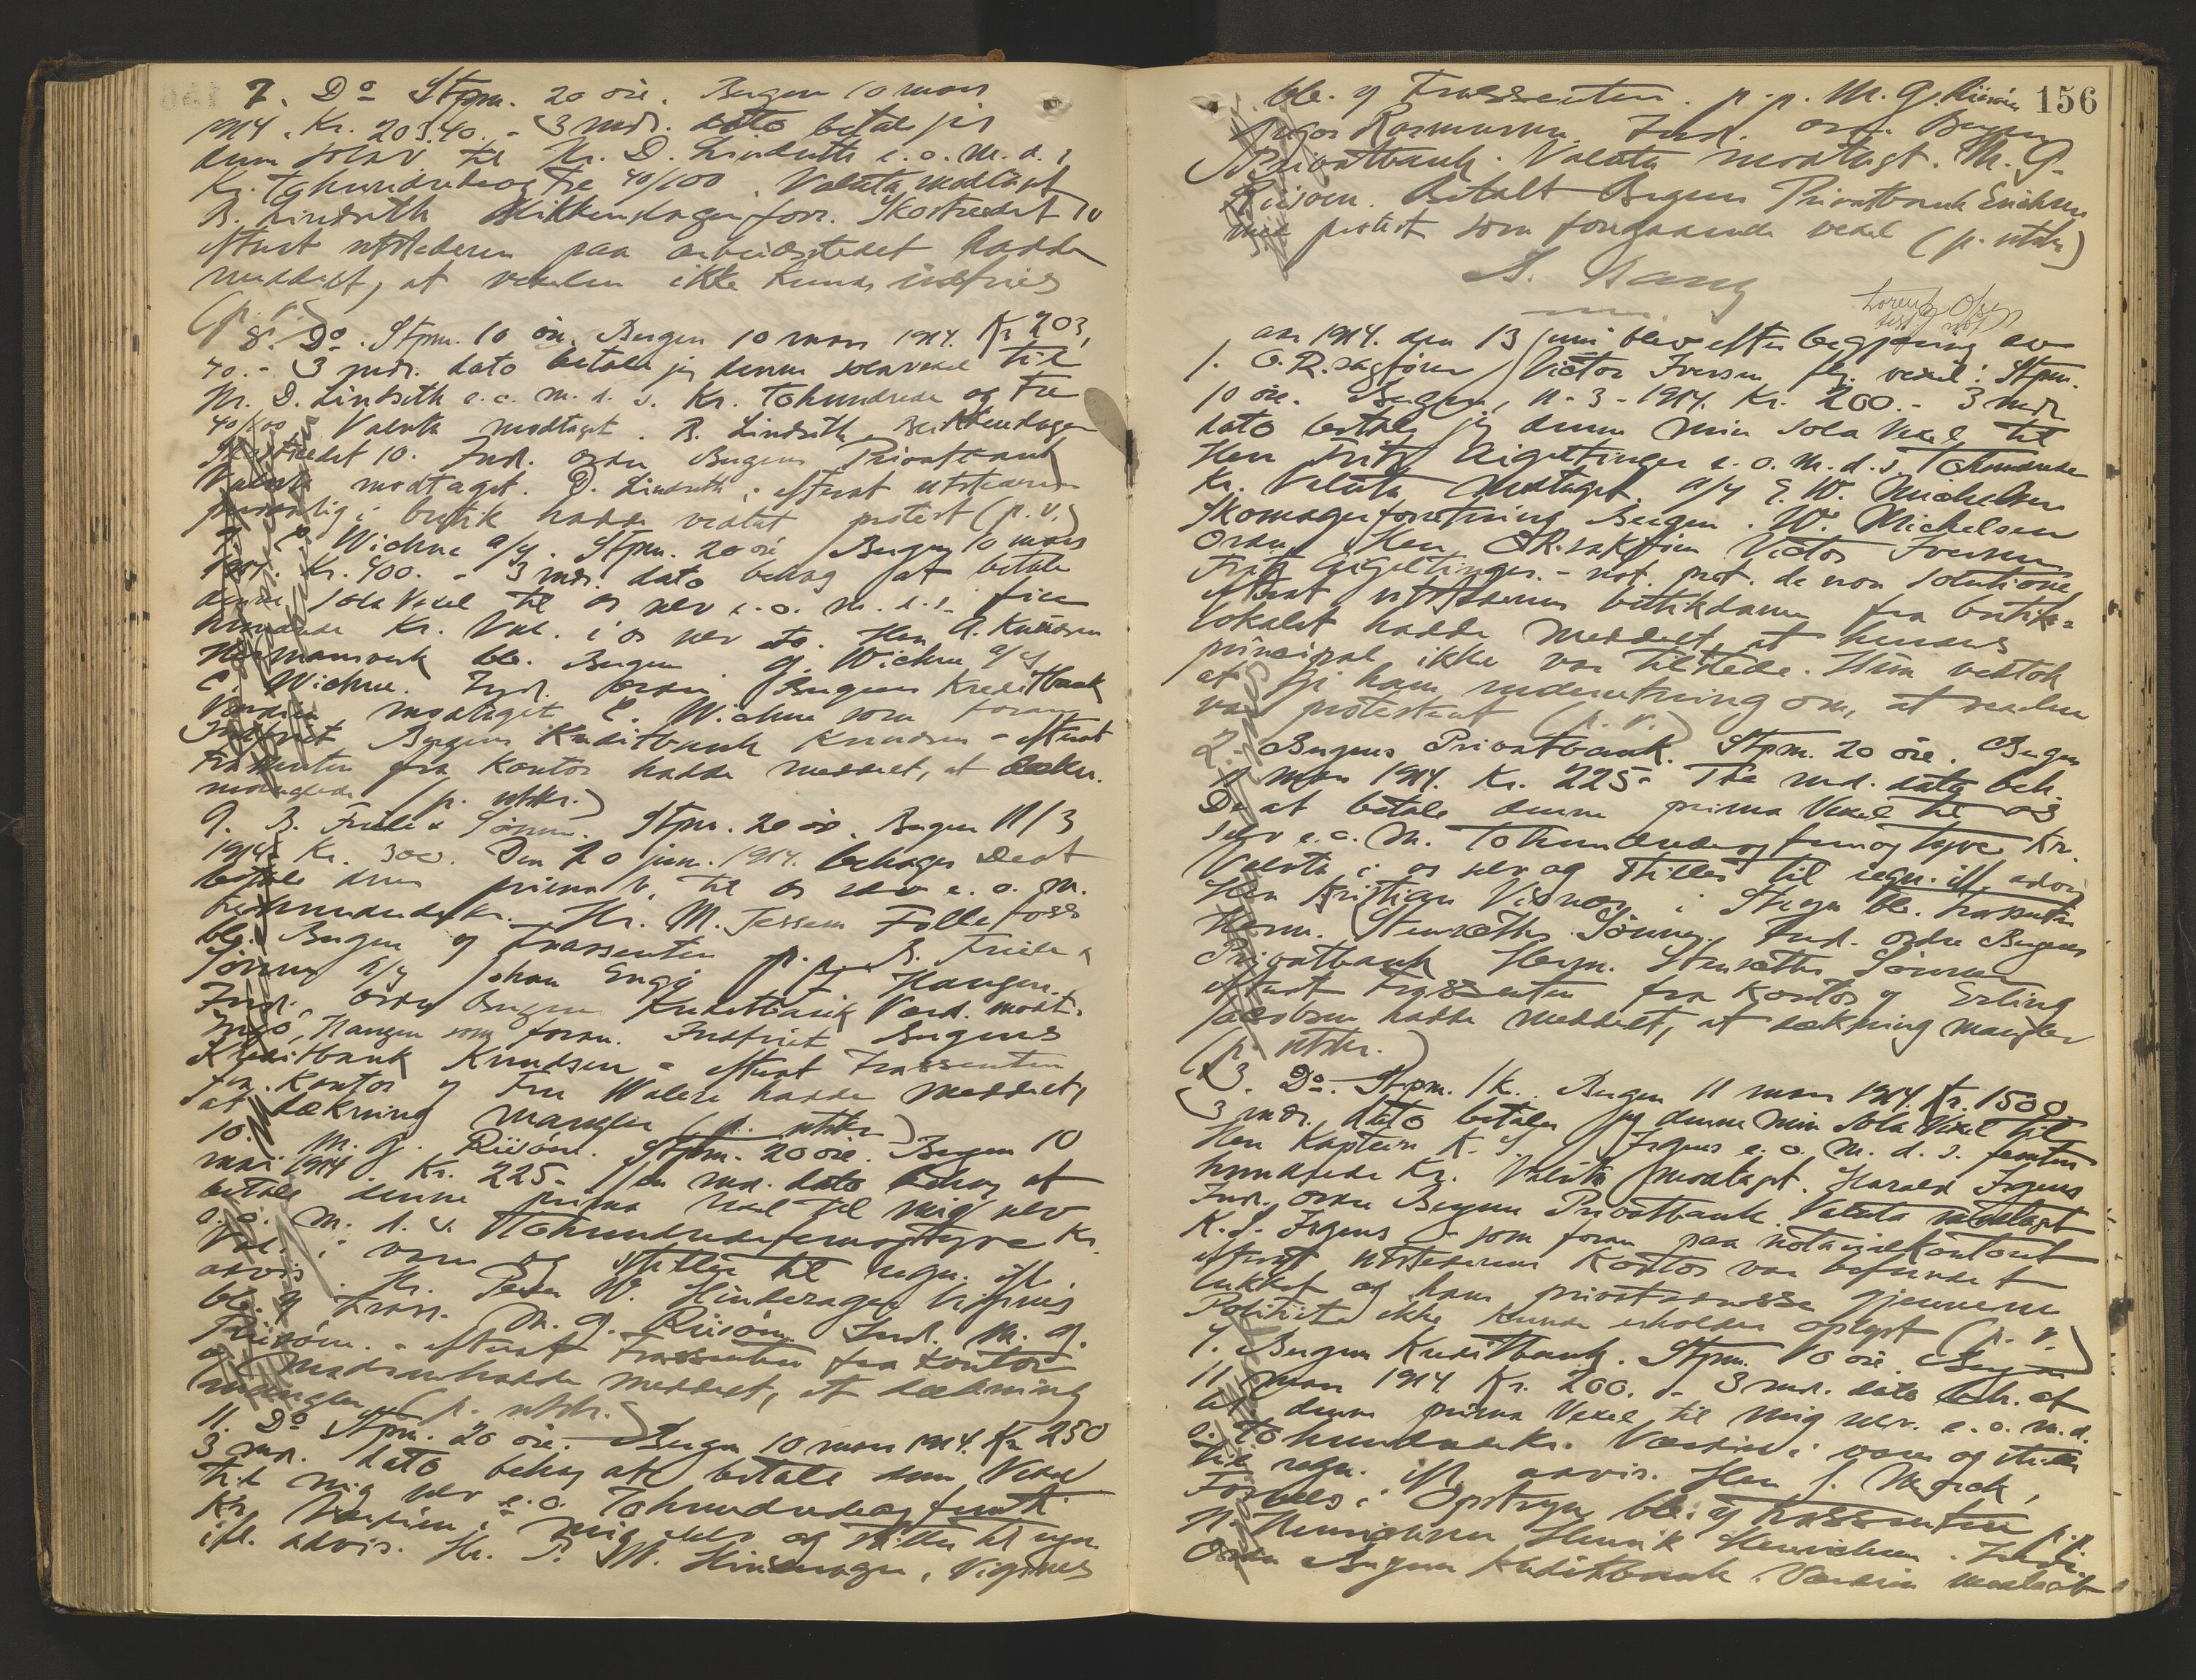 7. Do Stpm. 20 øre. Bergen 10 mars
1914. Kr. 203.40. - 3 mdr. dato betaler jeg
denne solav til Hr. D. Lindseth e. o. m. d. s
Kr. Tohundredeog Tre 40/100. Valuta modtaget
B. Lindseth Blikkenslagerforr. Skostrædet 10
efterat utstederen paa arbeidsstedet hadde
meddelt, at vekslen ikke kunde indfries
(p. v.)
8. Do. Stpm. 10 øre. Bergen 10 mars 1914. Kr 203,
40. - 3 mdr. dato betaler jeg denne solavexel til
Mr. D. Lindseth e. o. m. d. s. Kr. Tohundrede og Tre
40/100 Valuta modtaget. B. Lindseth Blikkenslager
Skostrædet 10. Ind. ordre Bergens Privatbank
Valuta modtaget. D. Lindseth; efterat utstederen
personlig i butik hadde vedtat protest (p. v.)
Wichne a/s. Stpm. 20 øre Bergen 10 mars
1914. Kr. 400. - 3 mdr. dato behag at betale
denne Sola Vexel til os selv e. o. m. d. s. fire
hundrede Kr. Val. i os selv. Herr A. Knudsen
Hermansverk ble. Bergen Wichne a/s
C. Wichne. Ind. ordre Bergens Kreditbank
Værdien modtaget C. Wichne som foran
Indfriet Bergens Kreditbank Knudsen - efterat
trassenten fra kontor hadde meddelt, at dækn.
manglede (p. utstr.)
9. B. Friele & Sønner. Stpm. 20 øre. Bergen 11/3
1914. Kr. 300. Den 20 juni 1914 behager De at
betale denne prima v. til os selv e. o. m.
trehundrede kr. Hr. M. Jessem Follefoss
ble. Bergen og trassenten p. p. B. Friele &
Sønner a/s Johan Engg J. Haugen.
Ind. ordre Bergens Kreditbank Værd. modt.
Haugen som foran. Indfriet Bergens
Kreditbank Knudsen - efterat trassenten
fra kontor og Fru Walere hadde meddelt,
at dækning mangler (p. utstr.)
10. M. G. Riisøen. Stpm. 20 øre. Bergen 10
mai 1914. Kr. 225 - 1 en md. dato behag at
betale denne prima Vexel til mig selv
e. o. m. d. s. Tohundredefemogtyve Kr.
Val. i varer og stilles til regn. ifl.
advis. Hr. Peder W. Hinderager Vigsnes
ble. og trass. M. G. Riisøen Ind. M. G.
Riisøen. - efterat Trassenten fra kontor
hadde meddelt, at dækning
mangler (p. utstr.)
11. Do Stpm. 20 øre. Bergen 10 mars 1914. Kr 250
3 mdr. dato behag at betale denne Vexel
til mig selv e. o. Tohundredeogfemti
Kr. Værdien i mig selv og stilles til regn
ifl. advis. Hr. P. W. Hinderager, Vigsnes
156
ble. og Trassenten. p. p. M. G. Riisøen
Rasmussen Ind. ord. Bergens
Privatbank. Valuta modtaget. M. G.
Riisøen. Betalt Bergens Privatbank Erichsen
med protest som foregaaende vexel (p. utstr)
Aar 1914. den 13 juni blev efter begjæring av
1. O.R.sagfører Victor Iversen flg. vexel: Stpm.
10 øre. Bergen, 11-3-1914. Kr. 200. - 3 mdr
dato betaler jeg denne min sola Vexel til
Herr Fritz Aigeltinger e. o. m. d. s. Tohundrede
Kr. Valuta modtaget. a/s E. W. Michelsen
Skomagerforretning Bergen. W. Michelsen
Ordre Herr OR.sakfører Victor Iversen
Fritz Aigeltinger. - not. prot. de non solutione,
efterat utstederens butikdame fra butik=
lokalet hadde meddelt, at hendes
principal ikke var tilstede. Hun vedtok
at gi ham underretning om, at vexlen
var protestert (p. v.)
2. Bergens Privatbank. Stpm. 20 øre. Bergen
11 mars 1914. Kr. 225 - Tre md. dato beh.
De at betale denne prima Vexel til os
selv e. o. m. Tohundredeogfemogtyve Kr.
Valuta i os selv og stilles til regn. ifl. advis
Herr Kristian Visnes i Stryn ble. trassenten
Herm. Stenseths Sønner. Ind. ordre Bergens
Privatbank Herm. Stenseths Sønner
efterat Trassenten fra kontor og Erling
Jacobsen hadde meddelt, at dækning mangler
(p. utstr.)
3. Do. Stpm. 1 k. Bergen 11 mars 1914. Kr. 1500.
3 mdr. dato betaler jeg denne min sola Vexel til
Herr Kaptein K. S. Irgens e. o. m. d. s. femten
hundrede Kr. Valuta modtaget. Harald Irgens
Ind. ordre Bergens Privatbank. Valuta modtaget
K. S. Irgens - som foran paa notarialkontoret
efterat utstederens kontor var befundet
lukket og hans privatadresse gjennem
Politiet ikke kunde erholdes oplyst (p. v.)
4. Bergens Kreditbank. Stpm. 10 øre. Bergen
11 mars 1914. Kr. 200. - 3 mdr. dato beh. at
bet. denne prima Vexel til mig selv. e. o. m. d.
s. Tohundrede Kr. Værdien i varer og stilles
til regn. ifl. advis. Herr J. Mørck,
i Opstryn ble. og trassenten p. p.
N. Henrichsen Henrik Henrichsen. Ind.
Ordre Bergens Kreditbank. Værdien modtaget